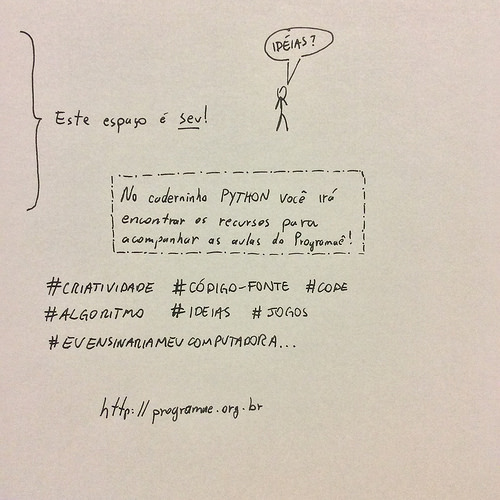 IDÉIAS?
Este espaço é seu!
No caderninho PYTHON você irá
encontrar os recursos para
acompanhar as aulas do Programaê!
#CRIATIVIDADE #CÓDIGO-FONTE #CODE
#ALGORITMO #IDEIAS #JOGOS
#EUENSINARIAMEUCOMPUTADORA...
http://programae.org.br